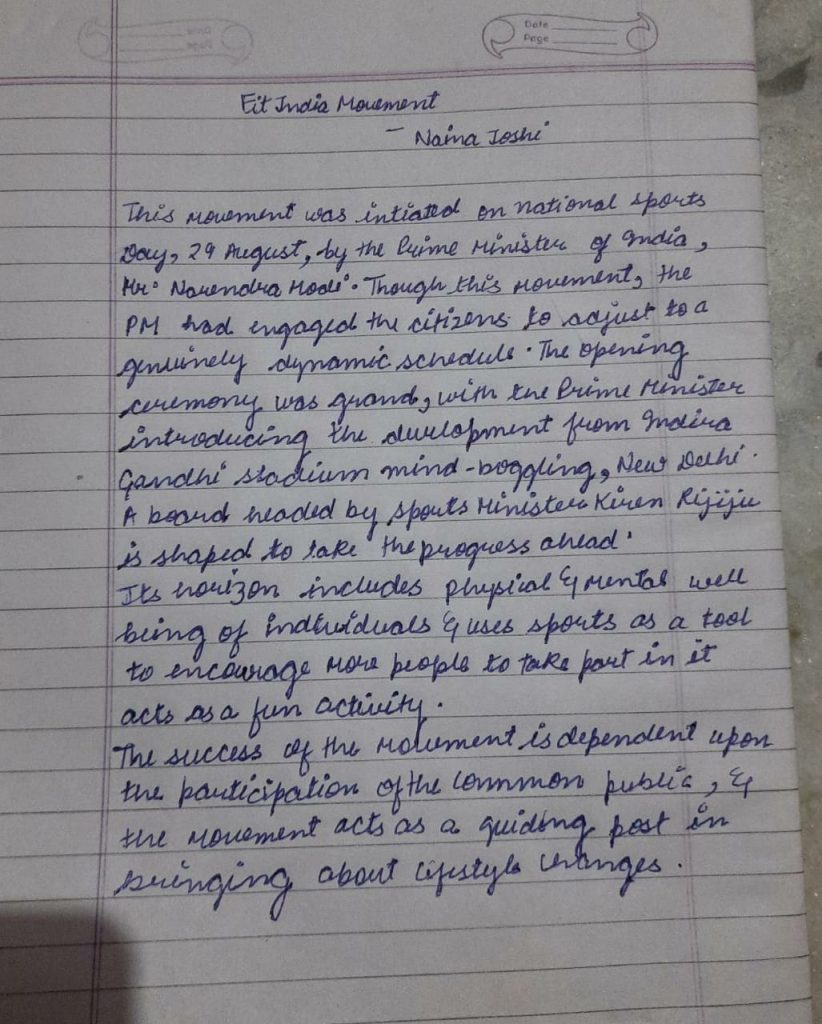 Date
Page
Fit India Movement
- Naina Joshi
This movement was intiated on national sports
Day, 29 August, by the Prime Minister of India,
Mr. Narendra Modi. Though this movement, the
PM had engaged the citizens to adjust to a
genuinely dynamic schedule. The opening
ceremony was grand, with the Prime Minister
introducing the development from Indira
Gandhi stadium mind-boggling, New Delhi.
A board headed by sports Minister Kiren Rijiju
is shaped to take the progress ahead.
Its horizon includes physical & mental well
being of individuals & uses sports as a tool
to encourage more people to take part in it
acts as a fun activity.
The success of the movement is dependent upon
the participation of the common public, &
the movement acts as a guiding post in
bringing about lifestyle changes.